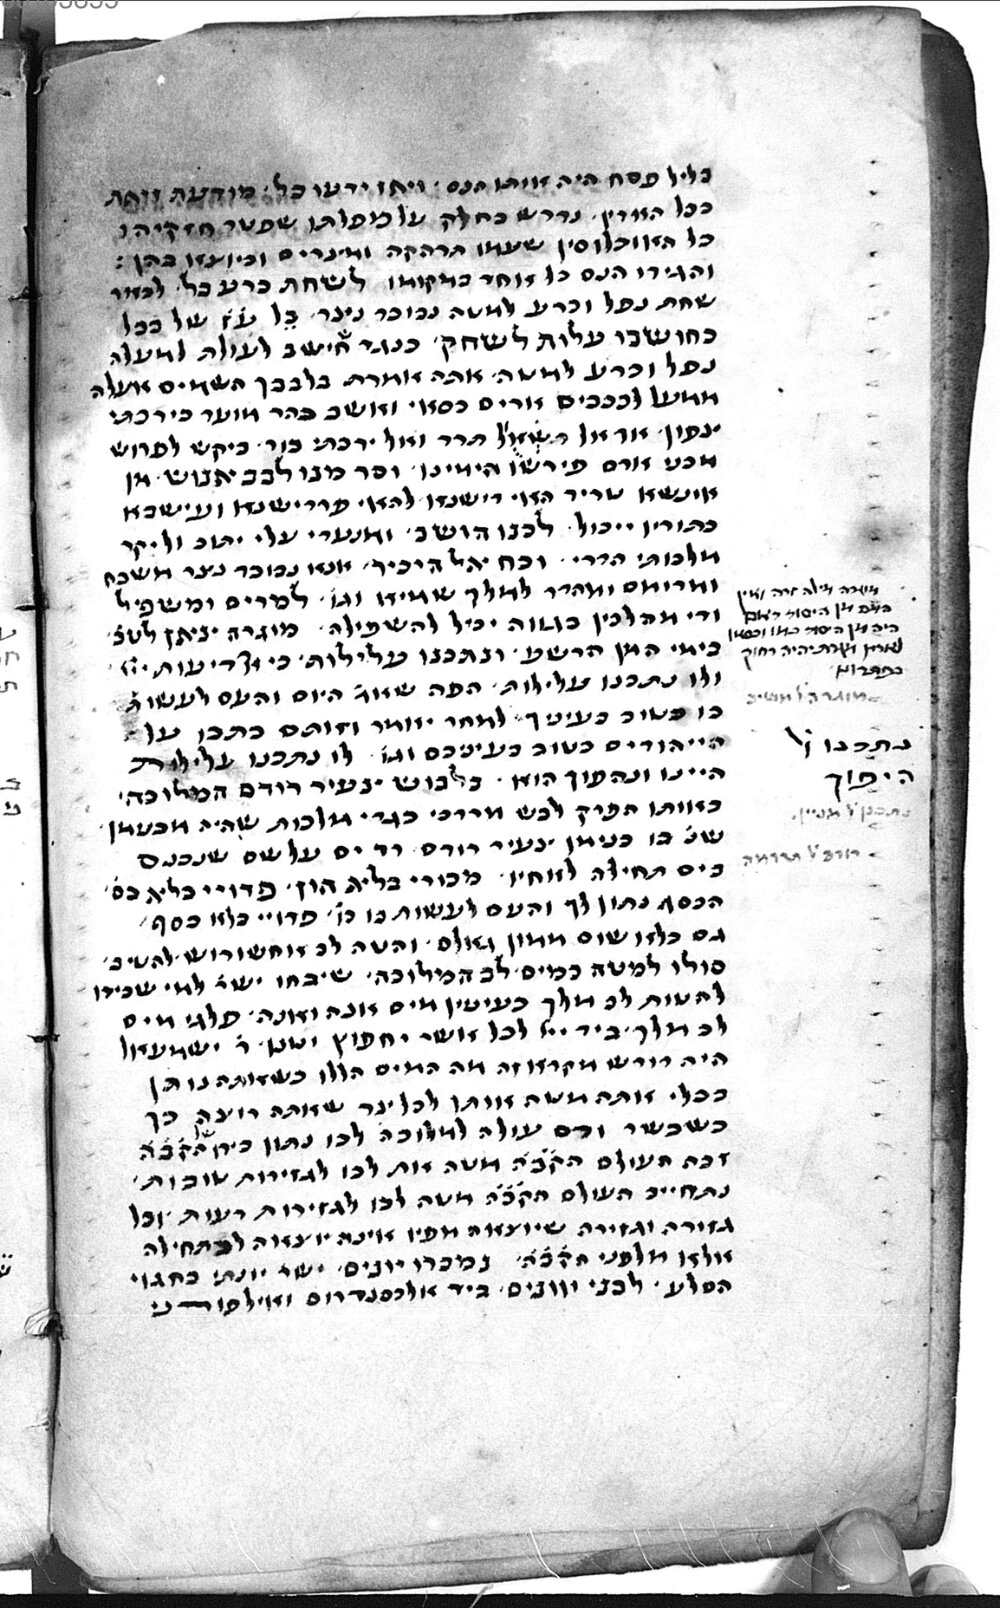 בליל פסח היה אותו הנס׳ ויחד ידעו כל׳ מודעת זאת
בכל הארץ׳ נדרש כחלק על מפלתו שפשר חזקיהו
כל האוכלוסין שעמו הרחקה ומצרים וכיוצאו בהן :
והגידו הנס כל אחד במקומו לשחת כרע בל׳ לבאר
שחת נפל וכרע למטה נבוכד ניצר׳ בל ע״ז של בבל
בחושבו עלות לשחק׳ כנגד חישב לעלות למעלה
נפל וכרע למטה׳ אתה אומרת בלבבך השמים אעלה
ממעל לככבים ארים כסאי ואשב בהר מועד בירכתי
צפון׳ אך אל שאול תרד ואל ירכתי בור׳ ביקש לפרוש
מבני אדם פירשו הימינו׳ וסר מנו לבב אנוש׳ מן
אינשא טריד האי דישנאו להאי פרדישנא ועישבא
כתורין ייכול׳ לכנו הושב׳ ומנערי עלי יתוב וליקר
מלכותי הדרי׳ וכח יאל הזכיר׳ אנא נבוכד נצר משבח
ומרומם ומהדר למלך שמיא וגו׳ למרים ומשפיל
ודי מהלכין בגווה יכיל להשפילה׳ מוגרה יצאתן לט׳
בימי המן הרשע׳ ונתכנו עלילות׳ כי אל דיעות יי׳
ולו נתכנו עלילות׳ הפה שאמ׳ היום והעם לעשות
בו כטוב בעיניך׳ למחר יאמר ואתם כתבו על
היהודים כטוב בעיניכם וגו׳ לו נתכנו עלילות
היינו ונהפוך הוא׳ בלבוש יצעיר רודם המלוכה׳
באותו הפרק לבש מרדכי בגדי מלכות שהיה מבעמן׳
שנ׳ בו בנימן צעיר רודם׳ רד ים על שם שנכנס
בים תחילה לאחיו׳ מכורי בלא הון׳ פדויי בלא כס׳
הכסף נתון לך והעם לעשות בו כו׳ פדויי בלא כסף׳
גם בלא שום ממון נגאלם׳ והטה לב אחשורוש להטיב׳
סולו למטה כמים לב המלוכה׳ שיבחו ישר׳ למי שבידו
להטות לב מלך כעיטין מים אנה ואנה׳ פלגי מים
לב מלך ביד יי׳ לכל אשר יחפוץ יטנו׳ ר׳ ישמעאל
היה דורש מקרא זה מה המים הללו כשאתה נותן
בכלי אתה מטה אותן לכל צד שאתה רוצה כך
כשבשר ודם עולה למלוכה לבו נתון ביד הקב״ה
זכה העולם הקב״ה מטה את לבו לגזירות טובות׳
נתחייב העולם הקב״ה מטה לבו לגזירות רעות וכל
גזירה וגזירה שיוצאה מפיו אינה יוצאה לבתחילה
אלא מלפני הקב״ה׳ נמכרו יונים׳ ישר׳ יונתי בחגוי
הסלע׳ לבני יוונים׳ ביד אלכסנדרוס ואילפורני
מוגרה מילה זרה ואין
המם מן היסוד דאם
היה מן היסוד
היה רחוק
מוגרה ל׳ משיב
נתכנו ל׳
היפוך
נתכנו ל׳ מניין